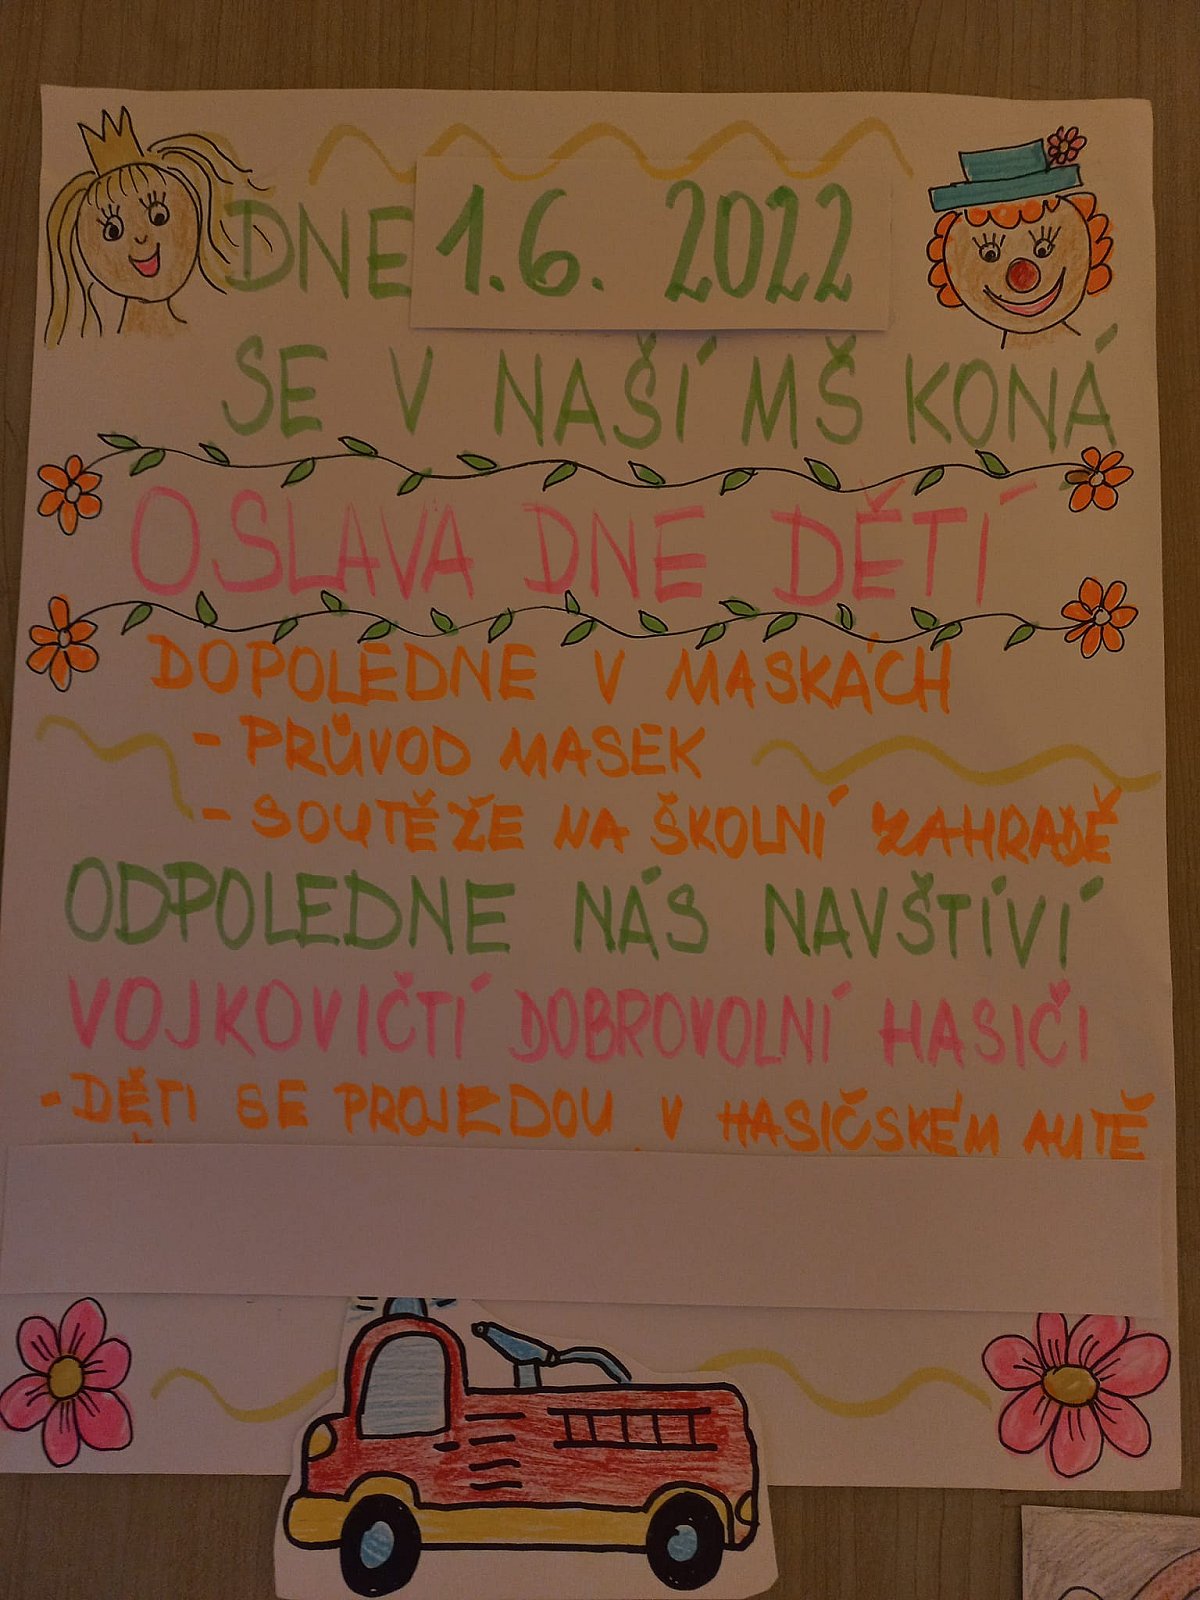 DNE 1.6. 2022
SE V NAŠÍ MŠ KONÁ
OSLAVA DNE DĚTÍ
DOPOLEDNE V MASKÁCH
- PRŮVOD MASEK
- SOUTĚŽE NA ŠKOLNÍ ZAHRADĚ
ODPOLEDNE NÁS NAVŠTÍVÍ
VOJKOVIČTÍ DOBROVOLNÍ HASIČI
- DĚTI SE PROJEDOU V HASIČSKÉM AUTĚ